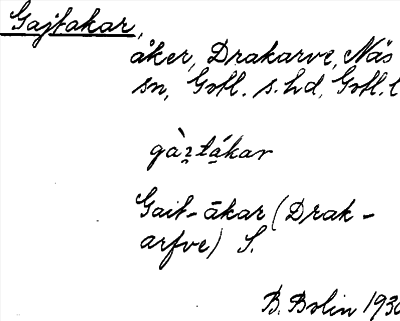 Gajtakar,
åker, Drakarve, Näs
sn, Gotl. s. hd, Gotl. l
gàɪtákar
Gait-åkar (Drak-
arfve) S.
B. Bolin 1930